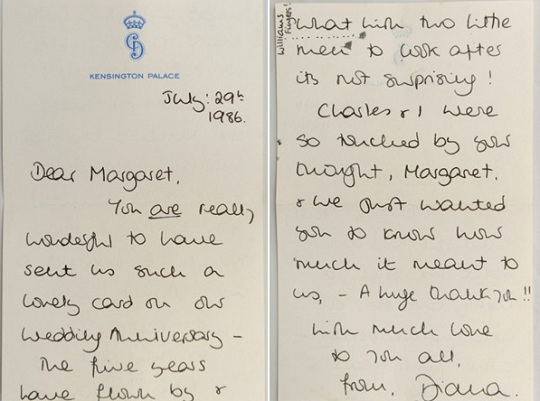 KENSINGTON PALACE
July: 29th
1986.
Dear Margaret,
You are really
wonderful to have
sent us such a
lovely card on our
Wedding Anniversary –
The five years
have flown by &
William's
finger!
what with two little
men to look after
its not surprising!
Charles & I were
so touched by your
thought, Margaret,
& we just wanted
you to know how
much it meant to
us, – A huge thank you!!
with much love
to you all,
from, Diana.